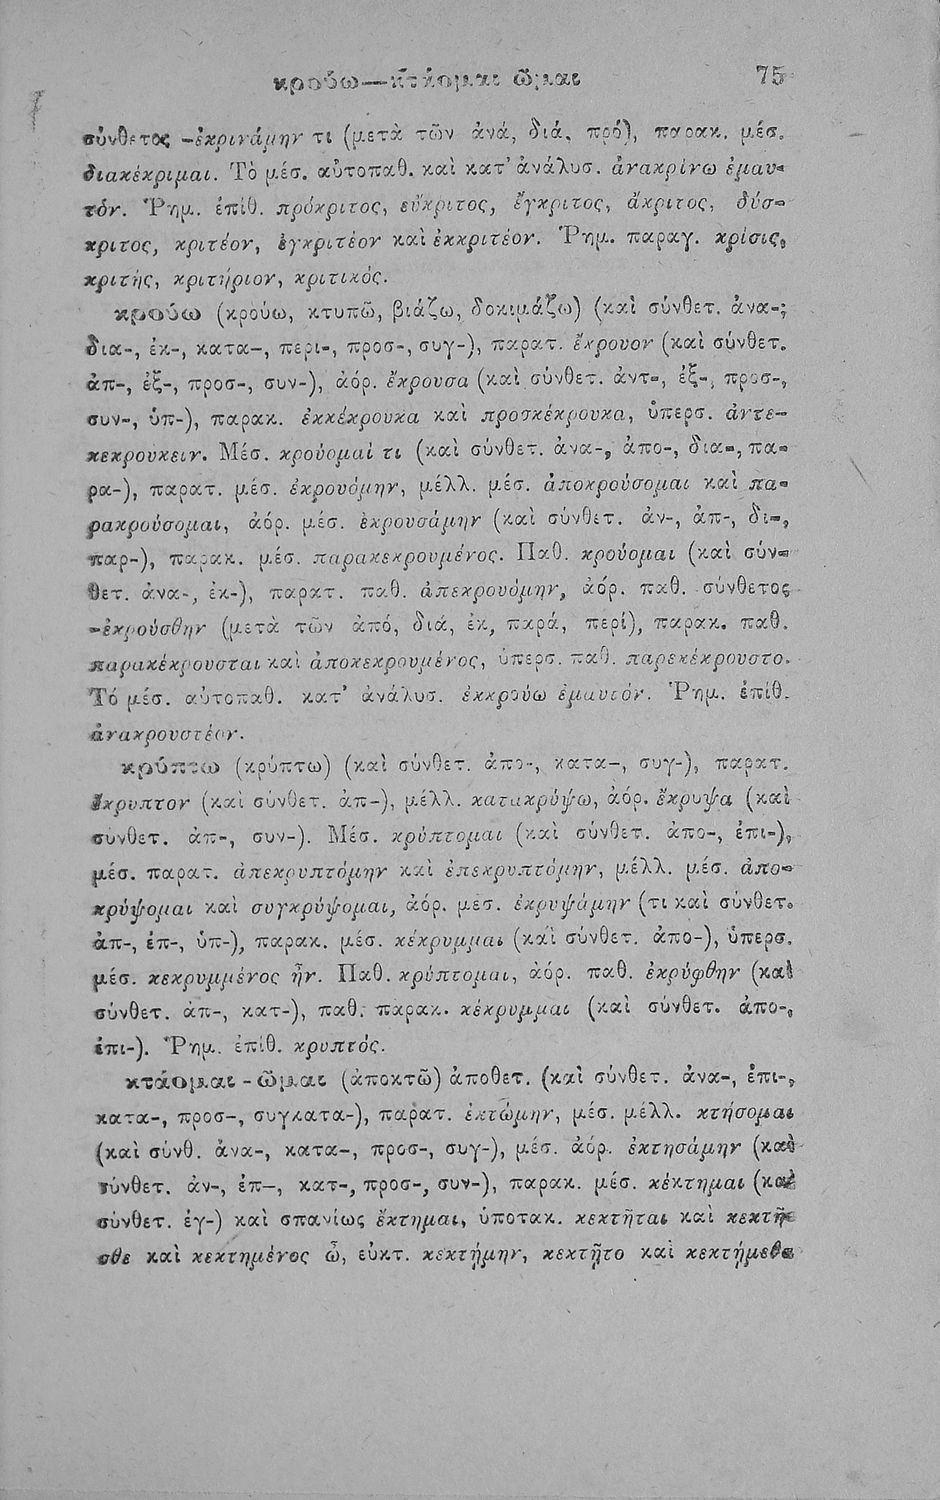 κρούω—κτάομαι ῶμαι 75
σύνθετος -ἐκρινάμην τι (μετὰ τῶν ἀνά, διά, πρό), παρακ. μέσ.
διακέκριμαι. Τὸ μέσ. αὐτοπαθ. καὶ κατ' ἀνάλυσ. ἀνακρίνω ἐμαυ-
τόν. Ῥημ. ἐπίθ. πρόκριτος, εὔκριτος, ἔγκριτος, ἄκριτος, δύσ-
κριτος, κριτέον, ἐγκριτέον καὶ ἐκκριτέον. Ῥημ. παραγ. κρίσις,
κριτής, κριτήριον, κριτικός.
κρούω (κρούω, κτυπῶ, βιάζω, δοκιμάζω) (καὶ σύνθετ. ἀνα-,
δια-, ἐκ-, κατα-, περι-, προσ-, συγ-), παρατ. ἔκρουον (καὶ σύνθετ.
ἀπ-, ἐξ-, προσ-, συν-), ἀόρ. ἔκρουσα (καὶ σύνθετ. ἀντ-, ἐξ-, προσ-,
συν-, ὑπ-), παρακ. ἐκκέκρουκα καὶ προσκέκρουκα, ὑπερσ. ἀντε-
κεκρουκειν. Μέσ. κρούομαί τι (καὶ σύνθετ. ἀνα-, ἀπο-, δια-, πα-
ρα-), παρατ. μέσ. ἐκρουόμην, μέλλ. μέσ. ἀποκρούσομαι καὶ πα-
ρακρούσομαι, ἀόρ. μέσ. ἐκρουσάμην (καὶ σύνθετ. ἀν-, ἀπ-, δι-,
παρ-), παρακ. μέσ. παρακεκρουμένος. Παθ. κρούομαι (καὶ σύν-
θετ. ἀνα-, ἐκ-), παρατ. παθ. ἀπεκρουόμην, ἀόρ. παθ. σύνθετος
-εκρούσθην (μετὰ τῶν ἀπό, διά, ἐκ, παρά, περί), παρακ. παθ.
παρακέκρουσται καὶ ἀποκεκρουμένος, ὑπερσ. παθ. παρεκέκρουστο.
Τό μέσ. αὐτοπαθ. κατ' ἀνάλυσ. ἐκκρούω ἐμαυτόν. Ῥημ. ἐπίθ.
ἀνακρουστέον.
κρύπτω (κρύπτω) (καὶ σύνθετ. ἀπο-, κατα-, συγ-), παρατ.
ἔκρυπτον (καὶ σύνθετ. ἀπ-), μέλλ. κατακρύψω, ἀόρ. ἔκρυψα (καὶ
σύνθετ. ἀπ-, συν-). Μέσ. κρύπτομαι (καὶ σύνθετ. ἀπο-, ἐπι-),
μέσ. παρατ. ἀπεκρυπτόμην καὶ ἐπεκρυπτόμην, μέλλ. μέσ. ἀπο-
κρύψομαι καὶ συγκρύψομαι, ἀόρ. μέσ. ἐκρυψάμην (τι καὶ σύνθετ.
ἀπ-, ἐπ-, ὑπ-), παρακ. μέσ. κέκρυμμαι (καὶ σύνθετ. ἀπο-), ὑπερσ.
μέσ. κεκρυμμένος ἦν. Παθ. κρύπτομαι, ἀόρ. παθ. ἐκρύφθην (καὶ
σύνθετ. ἀπ-, κατ-), παθ. παρακ. κέκρυμμαι (καὶ σύνθετ. ἀπο-,
ἐπι-). Ῥημ. ἐπίθ. κρυπτός.
κτάομαι - ῶμαι (ἀποκτῶ) ἀποθετ. (καὶ σύνθετ. ἀνα-, ἐπι-,
κατα-, προσ-, συγκατα-), παρατ. ἐκτώμην, μέσ. μέλλ. κτήσομαι
(καὶ σύνθ. ἀνα-, κατα-, προσ-, συγ-), μέσ. ἀόρ. ἐκτησάμην (καὶ
σύνθετ. ἀν-, ἐπ-, κατ-, προσ-, συν-), παρακ. μέσ. κέκτημαι (καὶ
σύνθετ. ἐγ-) καὶ σπανίως ἔκτημαι, ὑποτακ. κεκτῆται καὶ κεκτῆ-
σθε καὶ κεκτημένος ὦ, εὐκτ. κεκτῄμην, κεκτῇτο καὶ κεκτῄμεθα